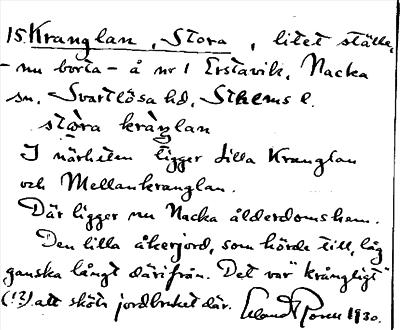 15. Kranglan, Stora, litet ställe,
- nu borta - å nr 1 Erstavik, Nacka
sn, Svartlösa hd, Sthlms l.
stòra kràŋlan
I närheten ligger Lilla Kranglan
och Mellankranglan.
Där ligger nu Nacka ålderdomshem.
Den lilla åkerjord, som hörde till, låg
ganska långt därifrån. Det var "krångligt"
(!?) att sköta jordbruket där. 1930.